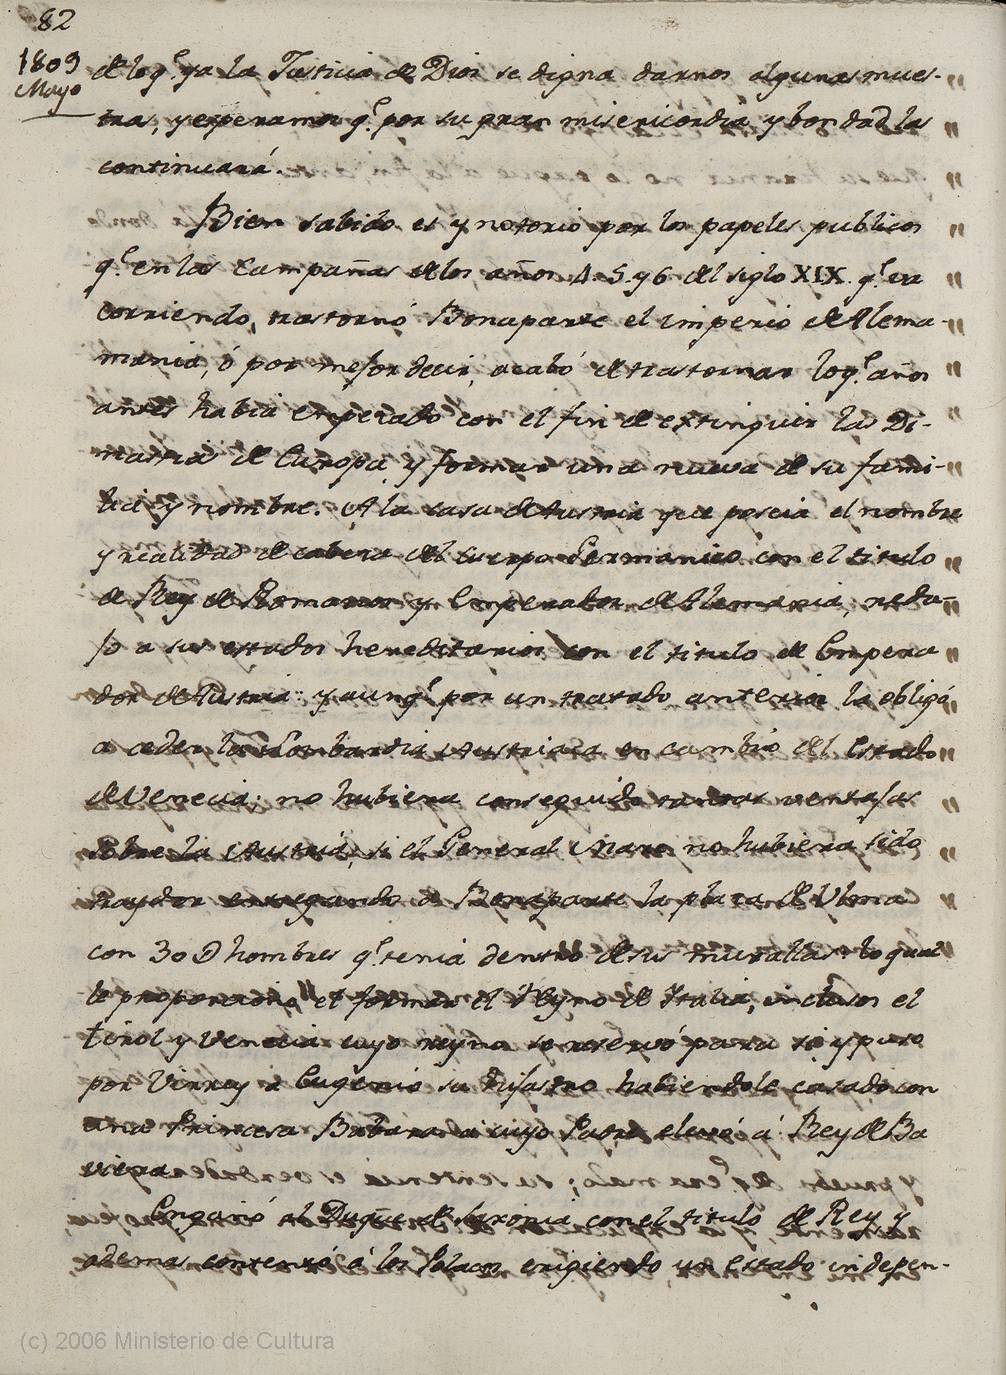 82
1809
Mayo
de loq.e ya la Justicia de Dios se digna darnos algunas mues-
tras, y esperamos q.e por su gran misericordia, y bondad las
continuará.
Bien sabido es y notorio por los papeles publicos
q.e en las Campañas de los años 4. 5. y 6 del siglo XIX. q.e va
corriendo, trastornó Bonaparte el imperio de Alema-
mania, ó por mejor decir, acabó de trastornar loq.e años
antes habia empezado con el fin de extinguir las Di-
nastias de Europa, y formar una nueva de su fami-
lia y nombre. A la casa de Austria que poseia el nombre
y realidad de cabeza del Cuerpo Germanico con el titulo
de Rey de Romanos y Emperador de Alemania, redu-
jo a sus estados hereditarios con el titulo de Empera
dor de Austria: y aunq.e por un tratado anterior la obligó
a ceder la Lombardia Austriaca en cambio del Estado
de Venecia; no hubiera conseguido tantas ventajas
sobre la Austria, si el General Mark no hubiera sido
traydor entregando a Bonaparte la plaza de Ulma
con 30 D hombres q.e tenia dentro de sus murallas: lo qual
le proporciono el formar el Reyno de Italia, inclusos el
Tirol y Venecia cuyo reyno se reservó para si y puso
por Virrey a Eugenio su hijastro habiendole casado con
una Princesa Babara a cuyo Padre elevó á Rey de Ba
viera.
Engañó al Duque de Saxonia con el titulo de Rey y
ademas contentó á los Polacos erigiendo un Estado indepen-
(c) 2006 Ministerio de Cultura